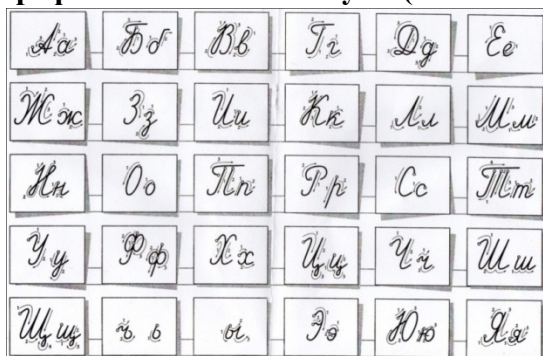 Аа Бб Вв Гг Дд Ее
Жж Зз Ии Кк Лл Мм
Нн Оо Пп Рр Сс Тт
Уу Фф Хх Цц Чч Шш
Щщ ъ ь ы Ээ Юю Яя